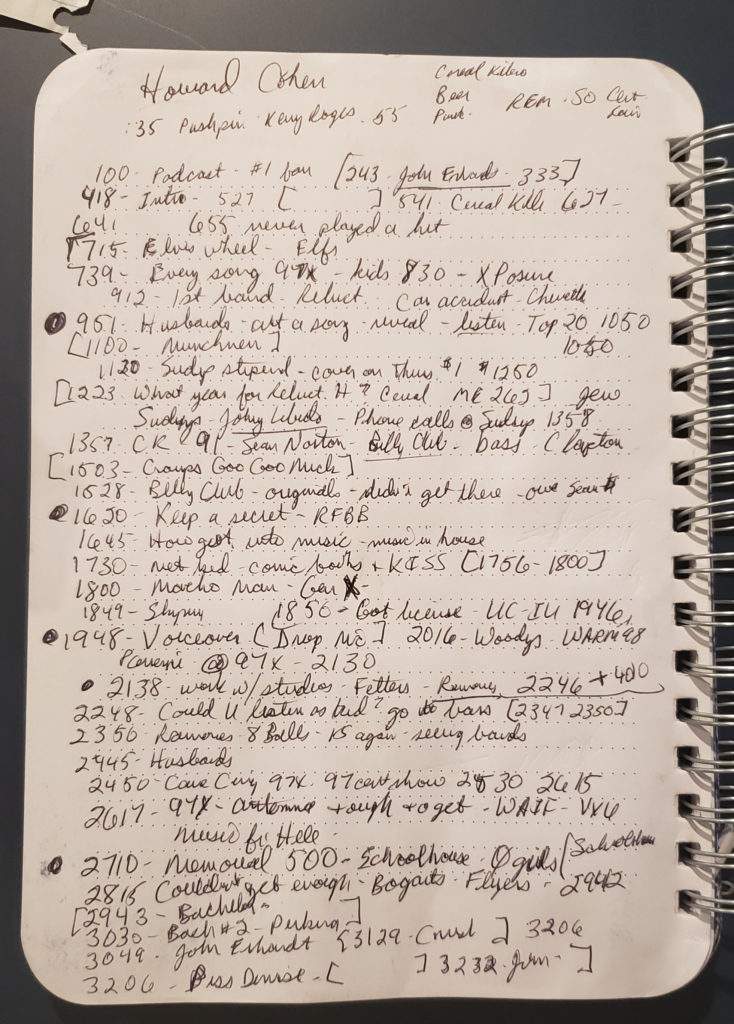 Howard Cohen
Cereal Killers
Beer
Punk
REM .50 Cert
:35 Pushpin Kenny Roges .55
100 - Podcast - #1 fan [243 - John Erhardt - 333]
418 - Intro - 527 [ ] 541 - Cereal Kills 627 -
641 655 never played a hit
[715 - Elvis wheel - Elfs
739 - Every song 97X - kids 830 - X Posure
912 - 1st band - Reluct. Car accident - Chevette
951 - Husbands - art a song - reveal - listen - Top 20 1050
[1100 - Munchmen] 1050
1120 - Sudsy stipend - cover on Thurs $1 $1250
[1223 - What year for Reluct. H? Cereal ME 262] Jew
Sudsys - Johny Libido - Phone calls @ Sudsys 1358
1357 - C.K 91 - Sean Norton - Billy Club - bass - Clapton
[1503 - Cramps Goo Goo Muck]
1528 - Belly Club - originals - didn't get there - one Sean
1620 - Keep a secret - RFBB
1645 - How get into music - music in house
1730 - net kid - comic books + KISS [1756 - 1800]
1800 - Macho Man - Gen X -
1849 - 1856 - Got license - UC - IU 1946
1948 - Voiceover [Drop MC] 2016 - Woodys - WARM 98
@ 97X - 2130
2138 - work w/ studios - Fetters - Raunees 2246 + 400
2248 - Could U listen as kid? go to bars [2347 2350]
2350 Raunees 8 Balls - 15 again - seeing bands
2445 - Husbands
2450 - Cave City 97X. 97cent show 2530 2615
2617 - 97X - antenna tough to get - WAIF - VXU
Music for Hele
2710 - Memorial 500 - Schoolhouse - 0 girls
2815 Couldn't get enough - Bogarts - Flyers - 2942
[2943 - Bachelor ]
3030 - Bach #2 - Perkins
3049 - John Erhardt [3129 - ] 3206
3206 - Piss Denise - [ ] 3232 - John - ]